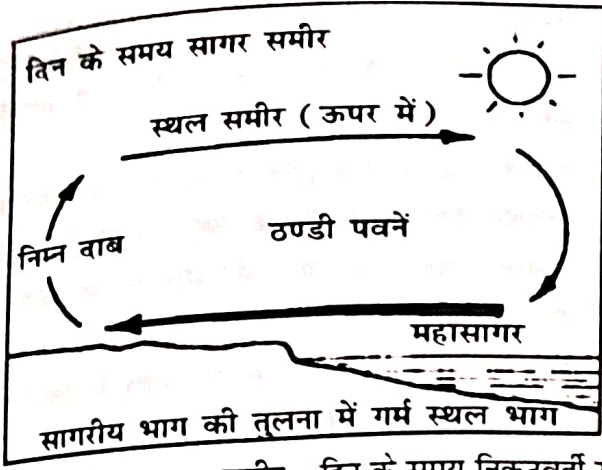 दिन के समय सागर समीर
स्थल समीर ( ऊपर में )
निम्न दाब
ठण्डी पवनें
महासागर
सागरीय भाग की तुलना में गर्म स्थल भाग
दिन के समय निकटवर्ती